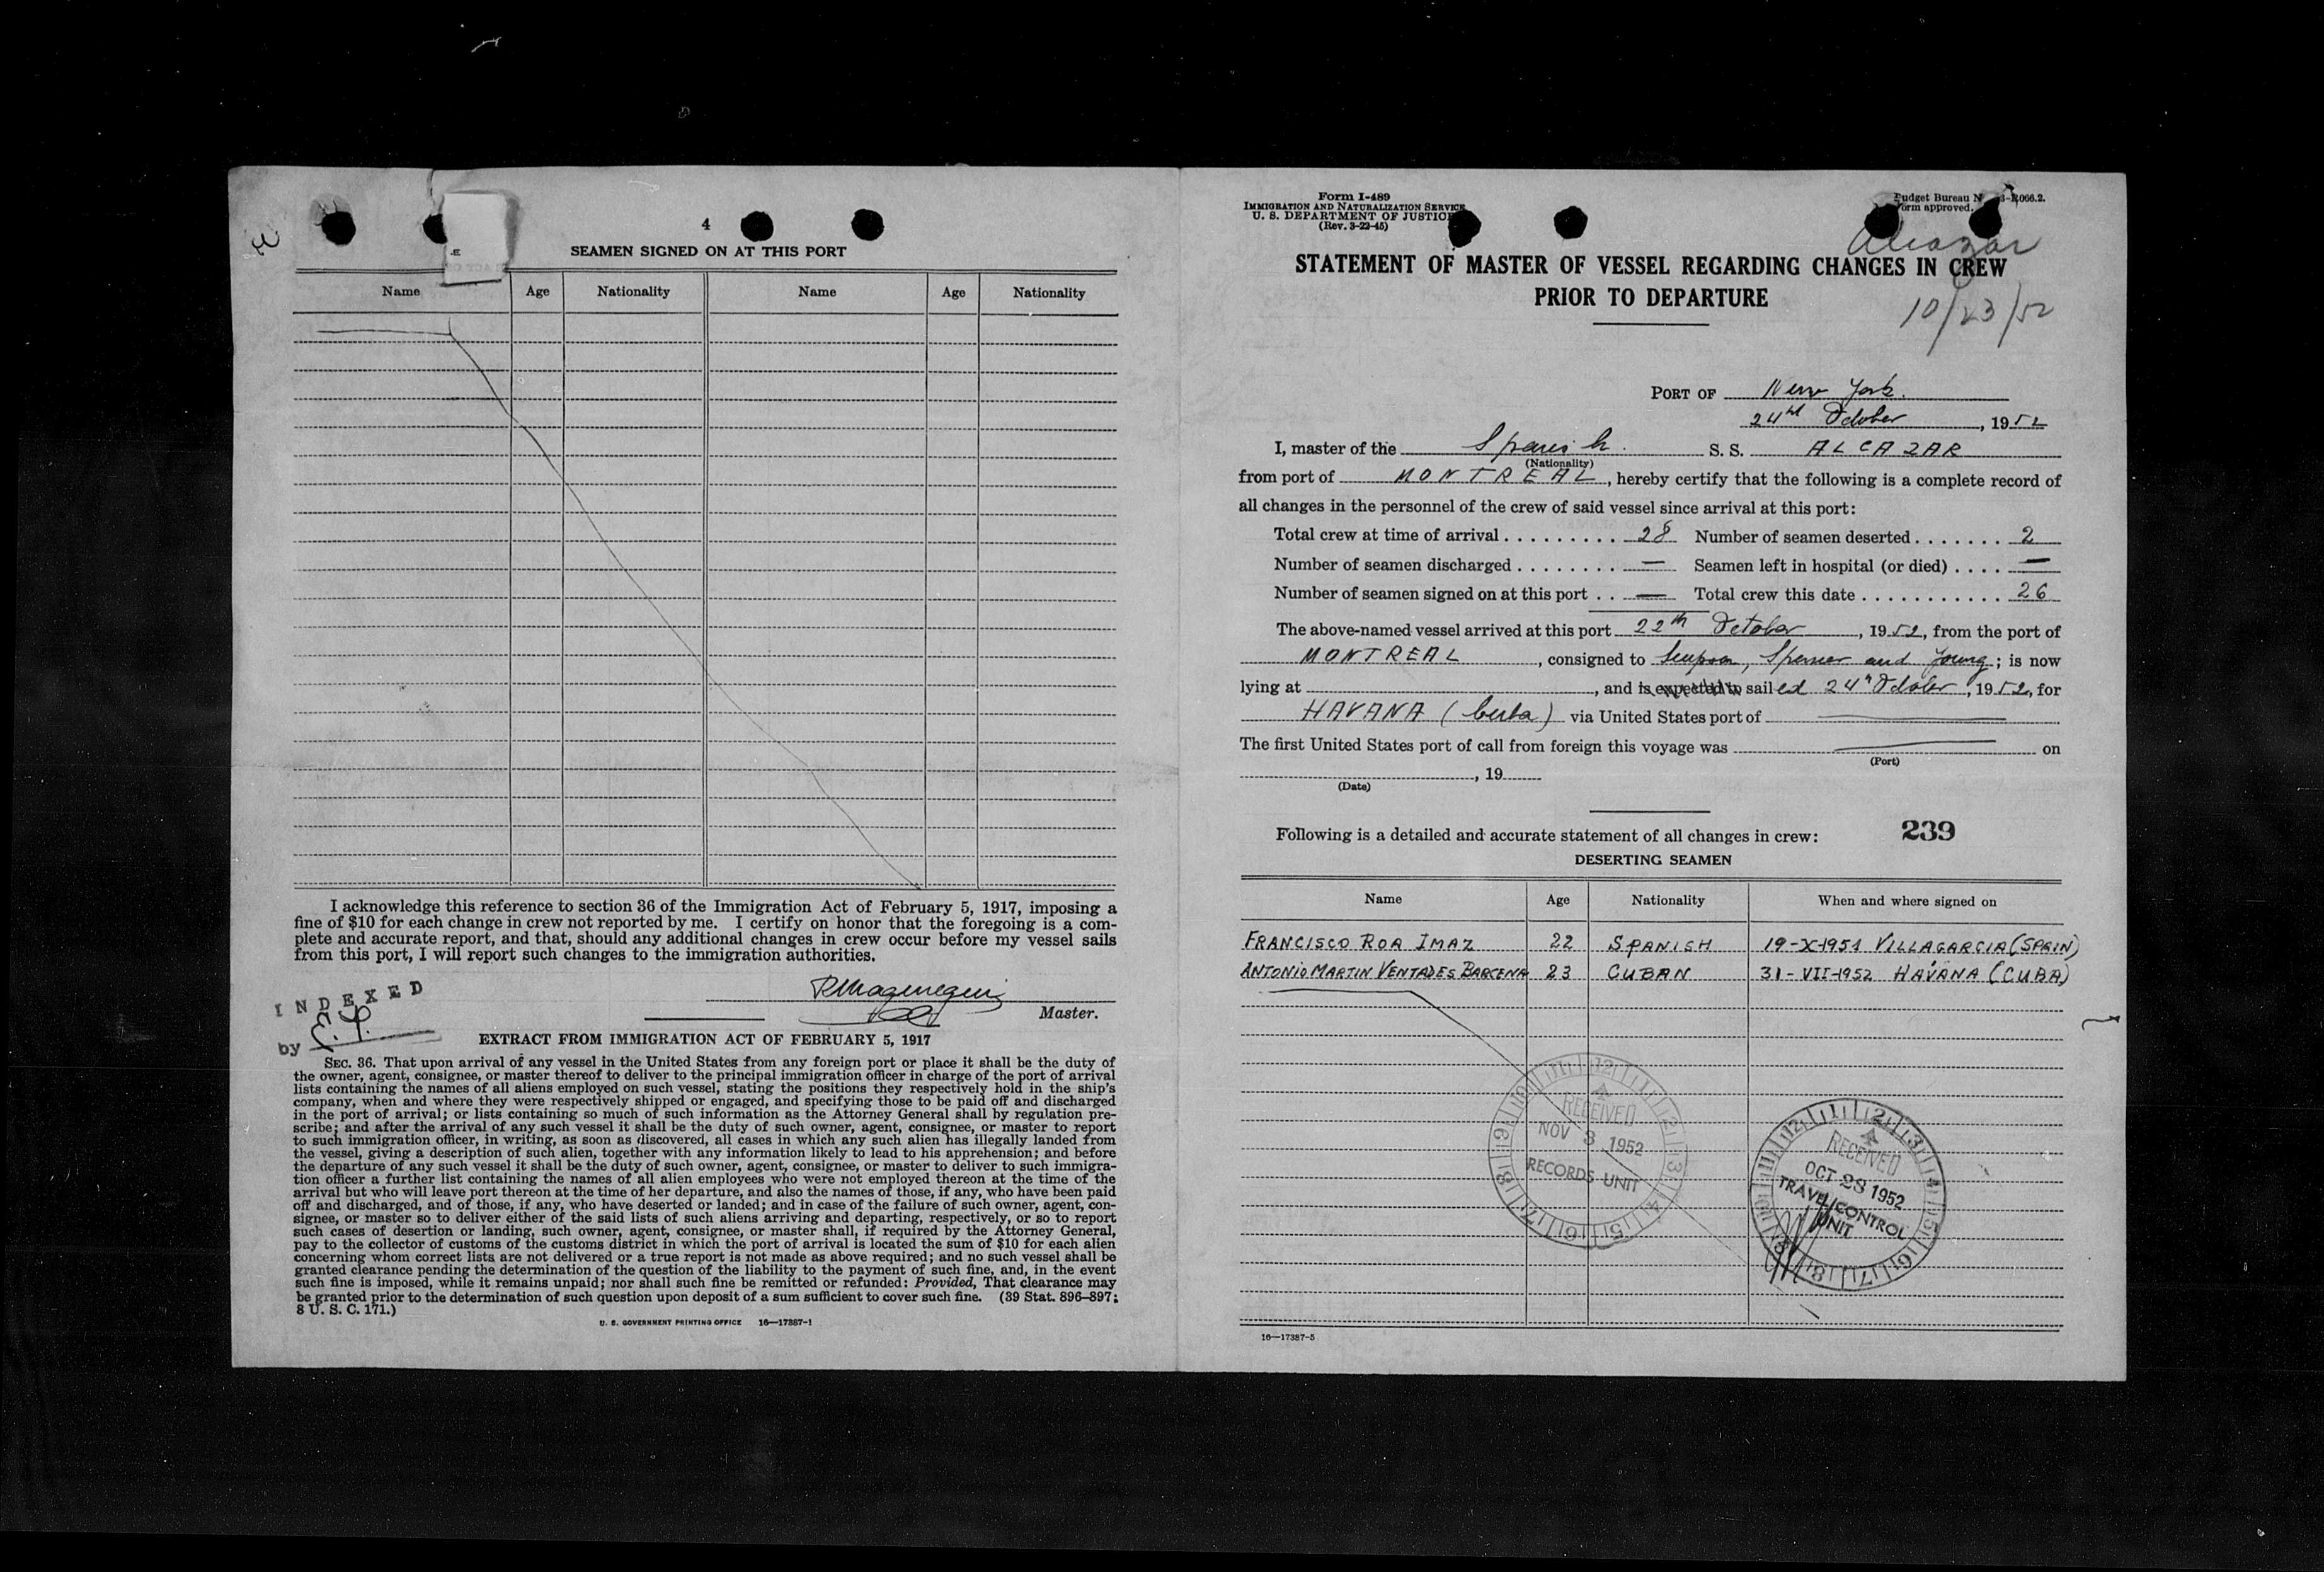 4
SEAMEN SIGNED ON AT THIS PORT
Name Age Nationality Name Age Nationality
I acknowledge this reference to section 36 of the Immigration Act of February 5, 1917, imposing a
fine of $10 for each change in crew not reported by me. I certify on honor that the foregoing is a com-
plete and accurate report, and that, should any additional changes in crew occur before my vessel sails
from this port, I will report such changes to the immigration authorities.
INDEXED
by E.
Master.
EXTRACT FROM IMMIGRATION ACT OF FEBRUARY 5, 1917
SEC. 36. That upon arrival of any vessel in the United States from any foreign port or place it shall be the duty of
the owner, agent, consignee, or master thereof to deliver to the principal immigration officer in charge of the port of arrival
lists containing the names of all aliens employed on such vessel, stating the positions they respectively hold in the ship's
company, when and where they were respectively shipped or engaged, and specifying those to be paid off and discharged
in the port of arrival; or lists containing so much of such information as the Attorney General shall by regulation pre-
scribe; and after the arrival of any such vessel it shall be the duty of such owner, agent, consignee, or master to report
to such immigration officer, in writing, as soon as discovered, all cases in which any such alien has illegally landed from
the vessel, giving a description of such alien, together with any information likely to lead to his apprehension; and before
the departure of any such vessel it shall be the duty of such owner, agent, consignee, or master to deliver to such immigra-
tion officer a further list containing the names of all alien employees who were not employed thereon at the time of the
arrival but who will leave port thereon at the time of her departure, and also the names of those, if any, who have been paid
off and discharged, and of those, if any, who have deserted or landed; and in case of the failure of such owner, agent, con-
signee, or master so to deliver either of the said lists of such aliens arriving and departing, respectively, or so to report
such cases of desertion or landing, such owner, agent, consignee, or master shall, if required by the Attorney General,
pay to the collector of customs of the customs district in which the port of arrival is located the sum of $10 for each alien
concerning whom correct lists are not delivered or a true report is not made as above required; and no such vessel shall be
granted clearance pending the determination of the question of the liability to the payment of such fine, and, in the event
such fine is imposed, while it remains unpaid; nor shall such fine be remitted or refunded: Provided, That clearance may
be granted prior to the determination of such question upon deposit of a sum sufficient to cover such fine. (39 Stat. 896–897;
8 U. S. C. 171.)
U. S. GOVERNMENT PRINTING OFFICE 16—17387-1
Form I-489
IMMIGRATION AND NATURALIZATION SERVICE
U. S. DEPARTMENT OF JUSTICE
(Rev. 3-22-45)
Budget Bureau N 3-R066.2.
Form approved.
Alcazar
STATEMENT OF MASTER OF VESSEL REGARDING CHANGES IN CREW
PRIOR TO DEPARTURE
10/23/52
PORT OF New York.
24th October, 1952
I, master of the Spanish. S. S. ALCAZAR
(Nationality)
from port of MONTREAL, hereby certify that the following is a complete record of
all changes in the personnel of the crew of said vessel since arrival at this port:
Total crew at time of arrival . . . . . . . . . 28 Number of seamen deserted . . . . . . . 2
Number of seamen discharged . . . . . . . . — Seamen left in hospital (or died) . . . . —
Number of seamen signed on at this port . . — Total crew this date . . . . . . . . . . . 26
The above-named vessel arrived at this port 22th October, 1952, from the port of
MONTREAL, consigned to Simpson, Spence and Young; is now
lying at , and is expected to sailed 24th October, 1952, for
HAVANA (Cuba) via United States port of —
The first United States port of call from foreign this voyage was — on
(Port)
, 19
(Date)
Following is a detailed and accurate statement of all changes in crew: 239
DESERTING SEAMEN
Name Age Nationality When and where signed on
FRANCISCO ROA IMAZ 22 SPANISH 19-X-1951 VILLAGARCIA (SPAIN)
ANTONIO MARTIN VENTADES BARCENA 23 CUBAN 31-VII-1952 HAVANA (CUBA)
RECEIVED
NOV 3 1952
RECORDS UNIT
RECEIVED
OCT 28 1952
TRAVEL CONTROL
UNIT
16—17387-5